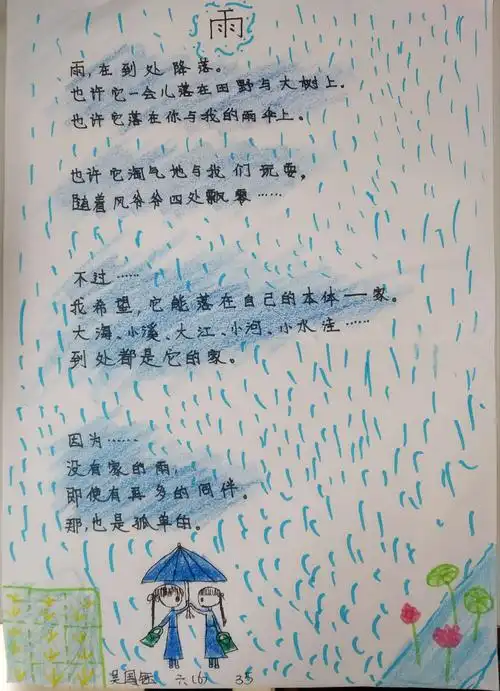 雨
雨,在到处降落。
也许它一会儿落在田野与大树上.
也许它落在你与我的雨伞上。
也许它淘气地与我们玩耍,
随着风爷爷四处飘零……
不过……
我希望,它能落在自己的本体——家。
大海、小溪、大江、小河、小水洼……
到处都是它的家。
因为……
没有家的雨,
即使有再多的同伴。
那,也是孤单的。
吴国钰 六(6) 35